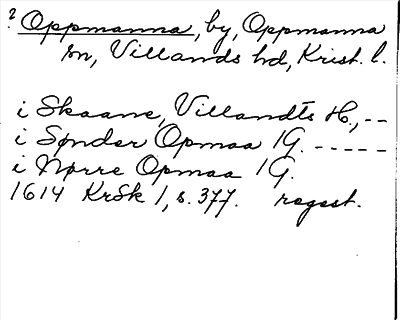 ? Oppmanna, by, Oppmanna
sn, Villands hd, Krist. l.
i Skaane, Villandts H., --
i Sønder Opmaa 1G. -----
i Nørre Opmaa 1G.
1614 KrSk 1, s. 377. regest.